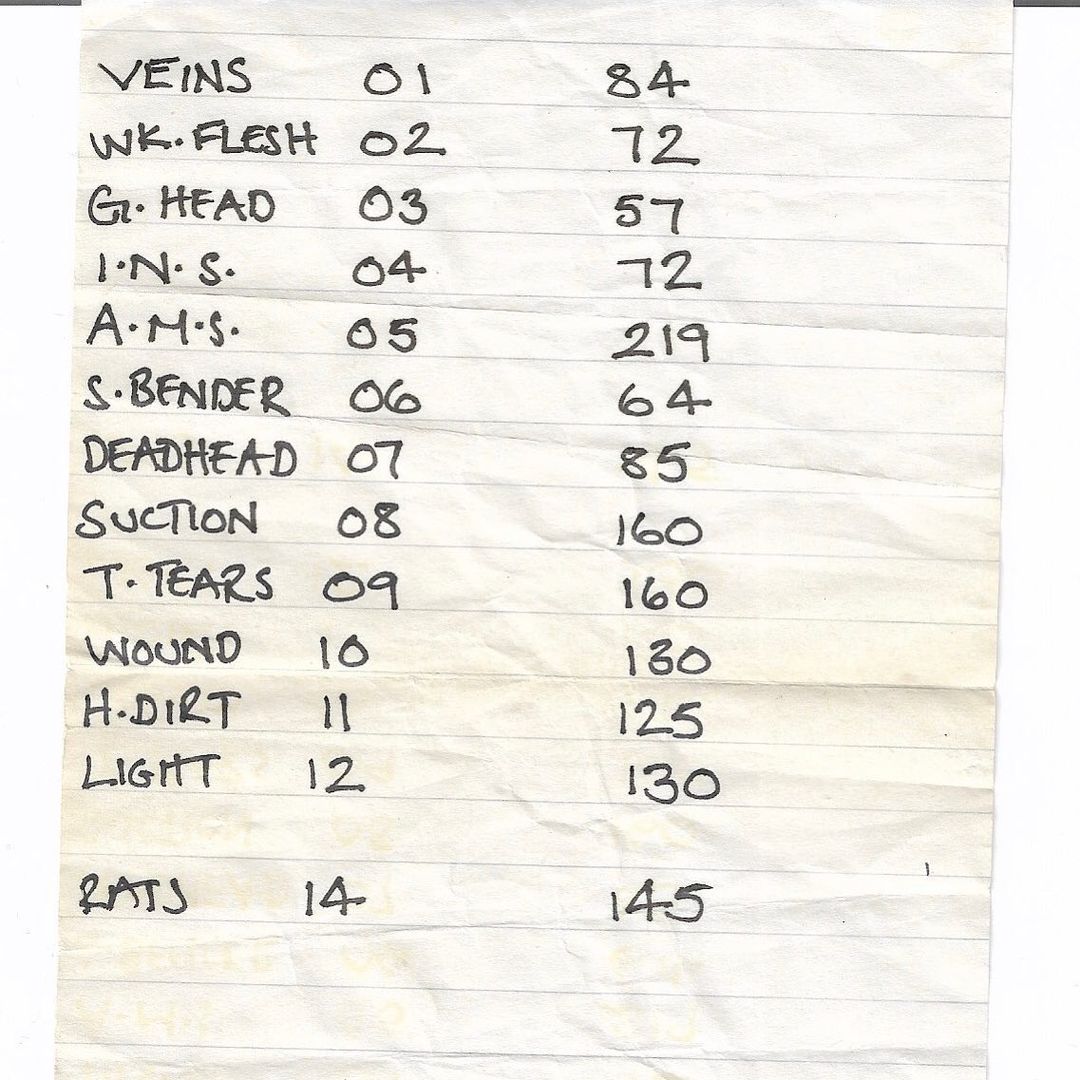 VEINS 01 84
WK. FLESH 02 72
G. HEAD 03 57
I.N.S. 04 72
A.M.S. 05 219
S. BENDER 06 64
DEADHEAD 07 85
SUCTION 08 160
T. TEARS 09 160
WOUND 10 130
H. DIRT 11 125
LIGHT 12 130
RATS 14 145